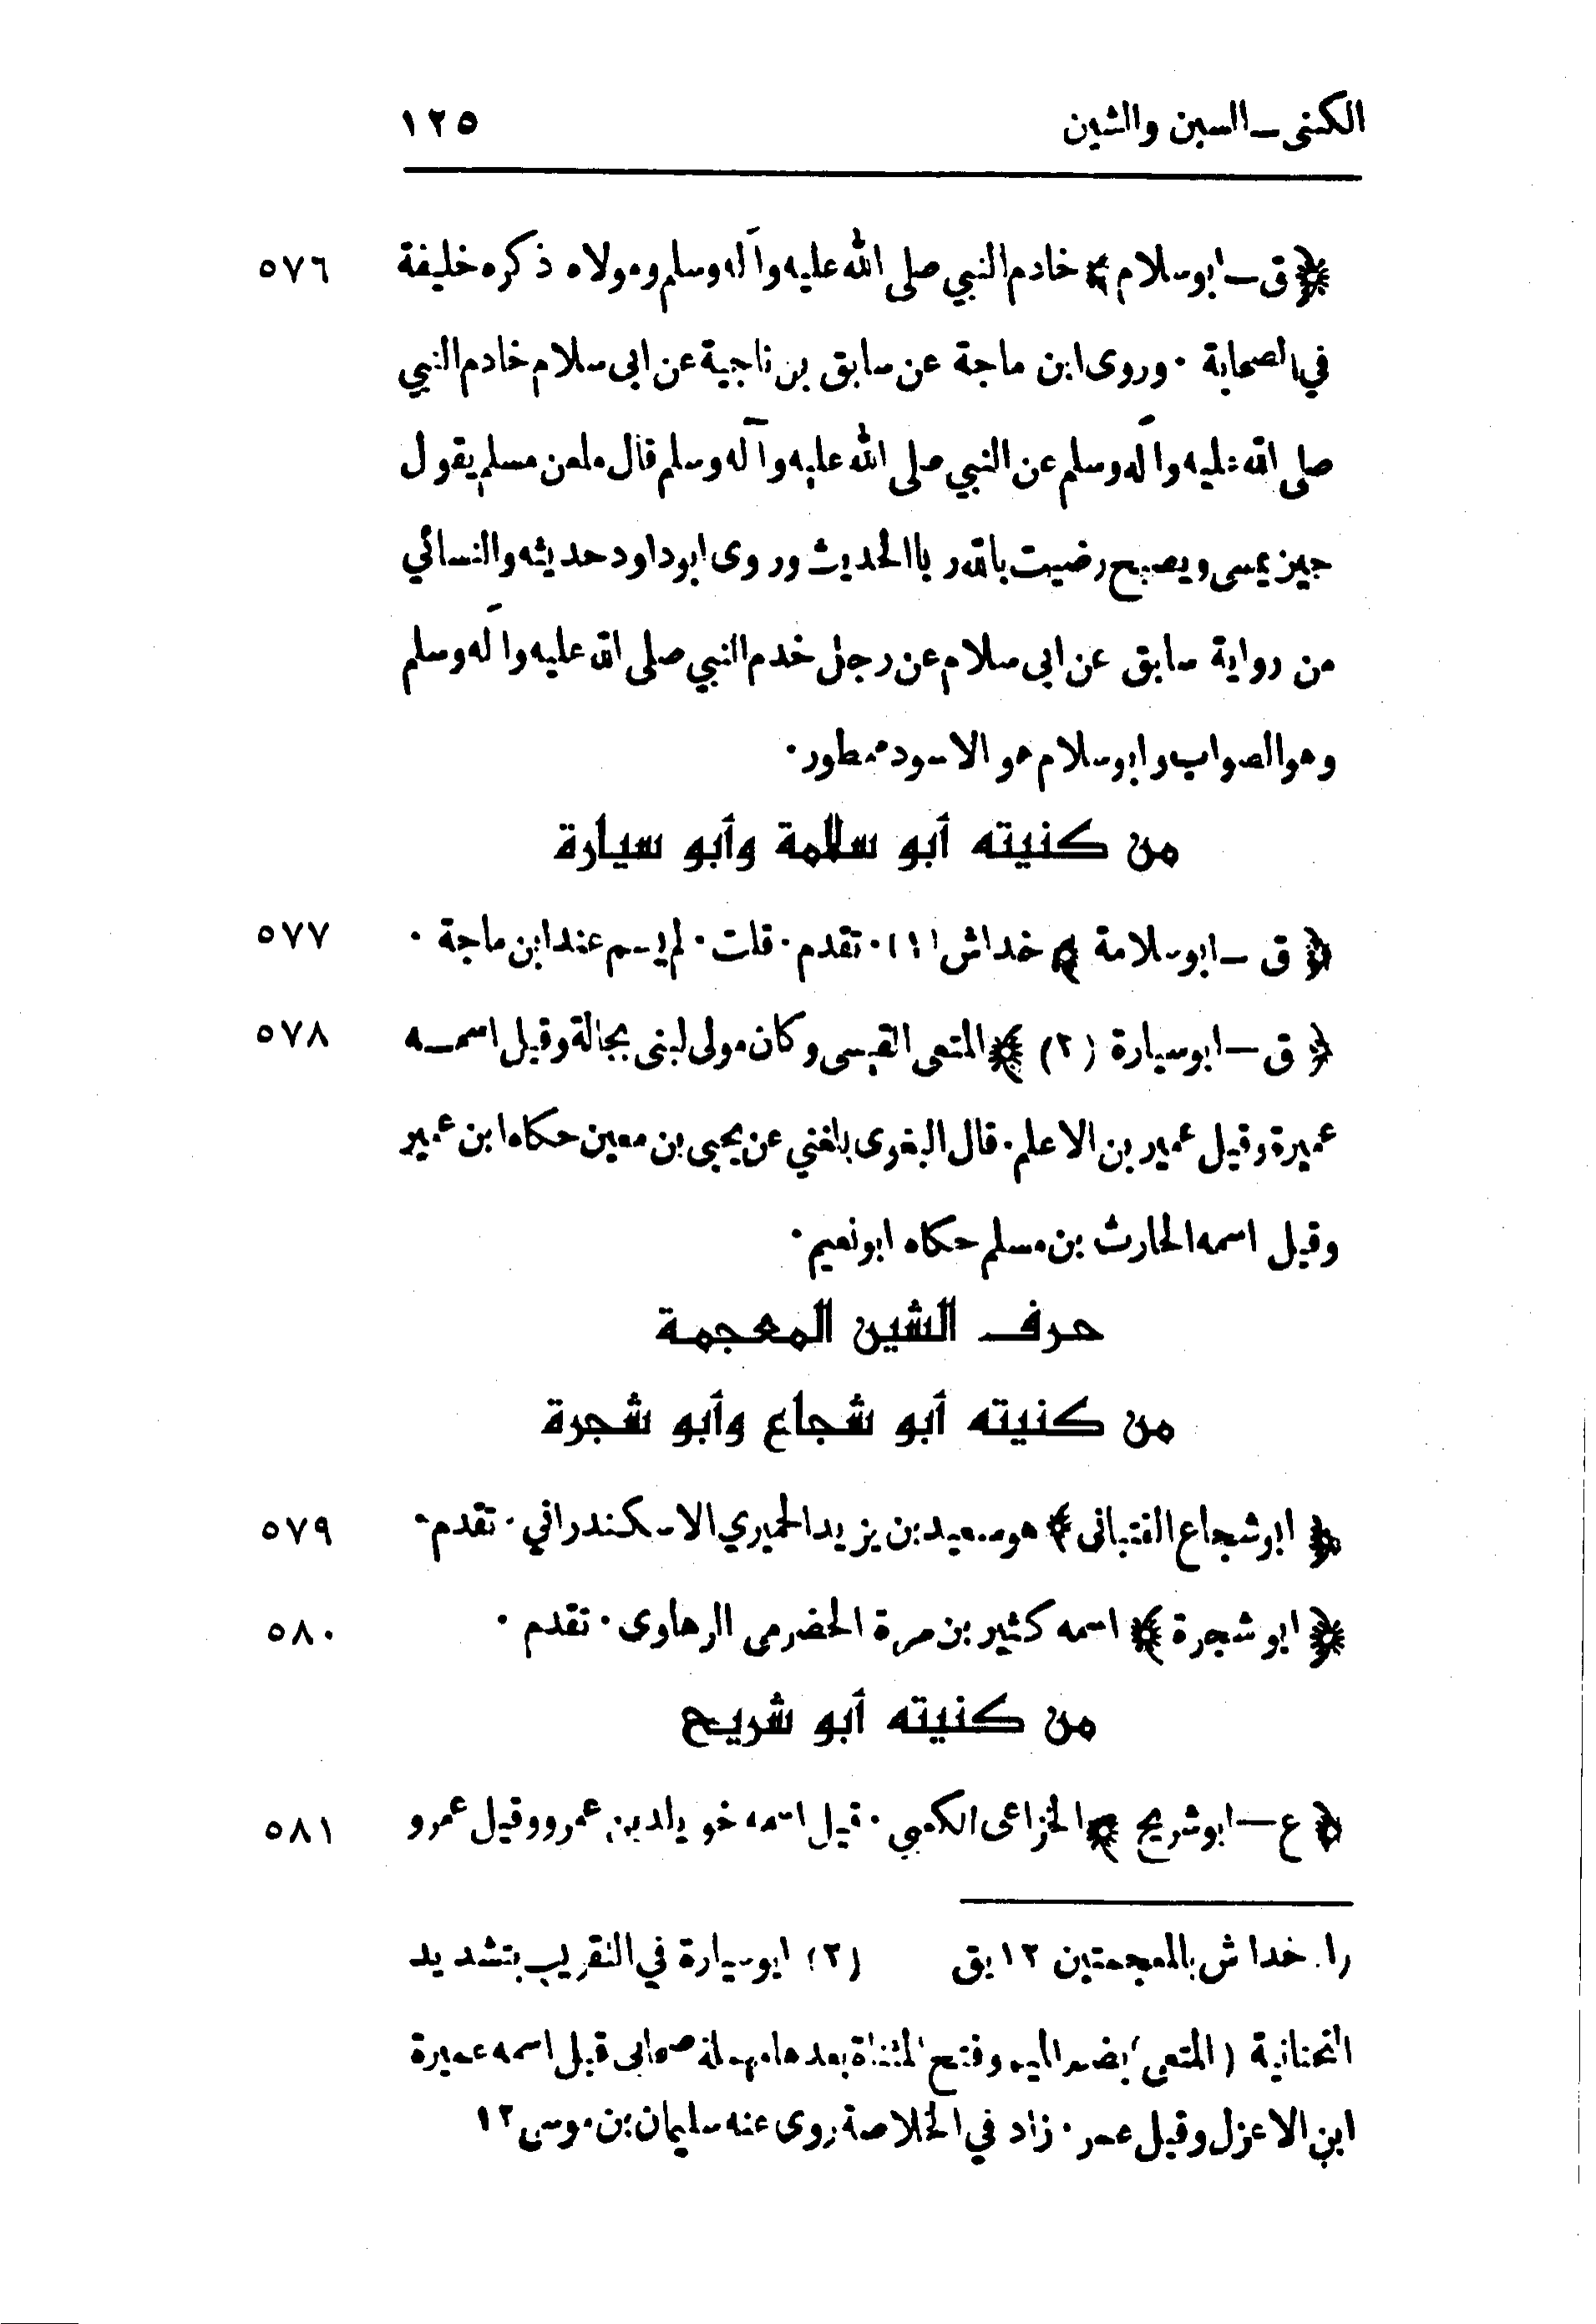 الكنى ـ السين والشين ١٢٥
﴿ق ـ ابو سلام﴾ خادم النبي صلى الله عليه وآله وسلم ومولاه ذكره خليفة ٥٧٦
في الصحابة ٠ وروى ابن ماجة عن سابق بن ناجية عن ابى سلام خادم النبي
صلى الله عليه وآله وسلم عن النبي صلى الله عليه وآله وسلم قال ما من مسلم يقول
حين يمسى ويصبح رضيت بالله ربا الحديث وروى ابوداود حديثه والنسائي
من رواية سابق عن ابى سلام عن رجل خدم النبي صلى الله عليه وآله وسلم
وهو الصواب وابو سلام هو الاسود ممطور ٠
من كنيته أبو سلامة وأبو سيارة
﴿ق ـ ابو سلامة﴾ خداش (١) ٠ تقدم ٠ قلت ٠ لم يسم عند ابن ماجة ٠ ٥٧٧
﴿ق ـ ابوسيارة (٢)﴾ المتعى القيسى وكان مولى لبنى بجالة وقيل اسمــه ٥٧٨
عميرة وقيل عمير بن الاعلم ٠ قال البغوى بلغني عن يحيى بن معين حكاه ابن عمير
وقيل اسمه الحارث بن مسلم حكاه ابونعيم ٠
حرف الشين المعجمة
من كنيته أبو شجاع وأبو شجرة
﴿ابو شجاع القتبانى﴾ هو سعيد بن يزيد الحميري الاسكندراني ٠ تقدم ٠ ٥٧٩
﴿ابو شجرة﴾ اسمه كثير بن مرة الحضرمى الرهاوى ٠ تقدم ٠ ٥٨٠
من كنيته أبو شريح
﴿ع ـ ابو شريح﴾ الخزاعى الكعبي ٠ قيل اسمه خويلد بن عمرو وقيل عمرو ٥٨١
(١) خداش بالمعجمتين ١٢ يق (٢) ابو سيارة في التقريب بتشديد
التحتانية (المتعى) بضم الميم وفتح المثناة بعدها مهملة صحابى قيل اسمه عميرة
ابن الاعزل وقيل عمر ٠ زاد في الخلاصة روى عنه سليمان بن موسى ١٢